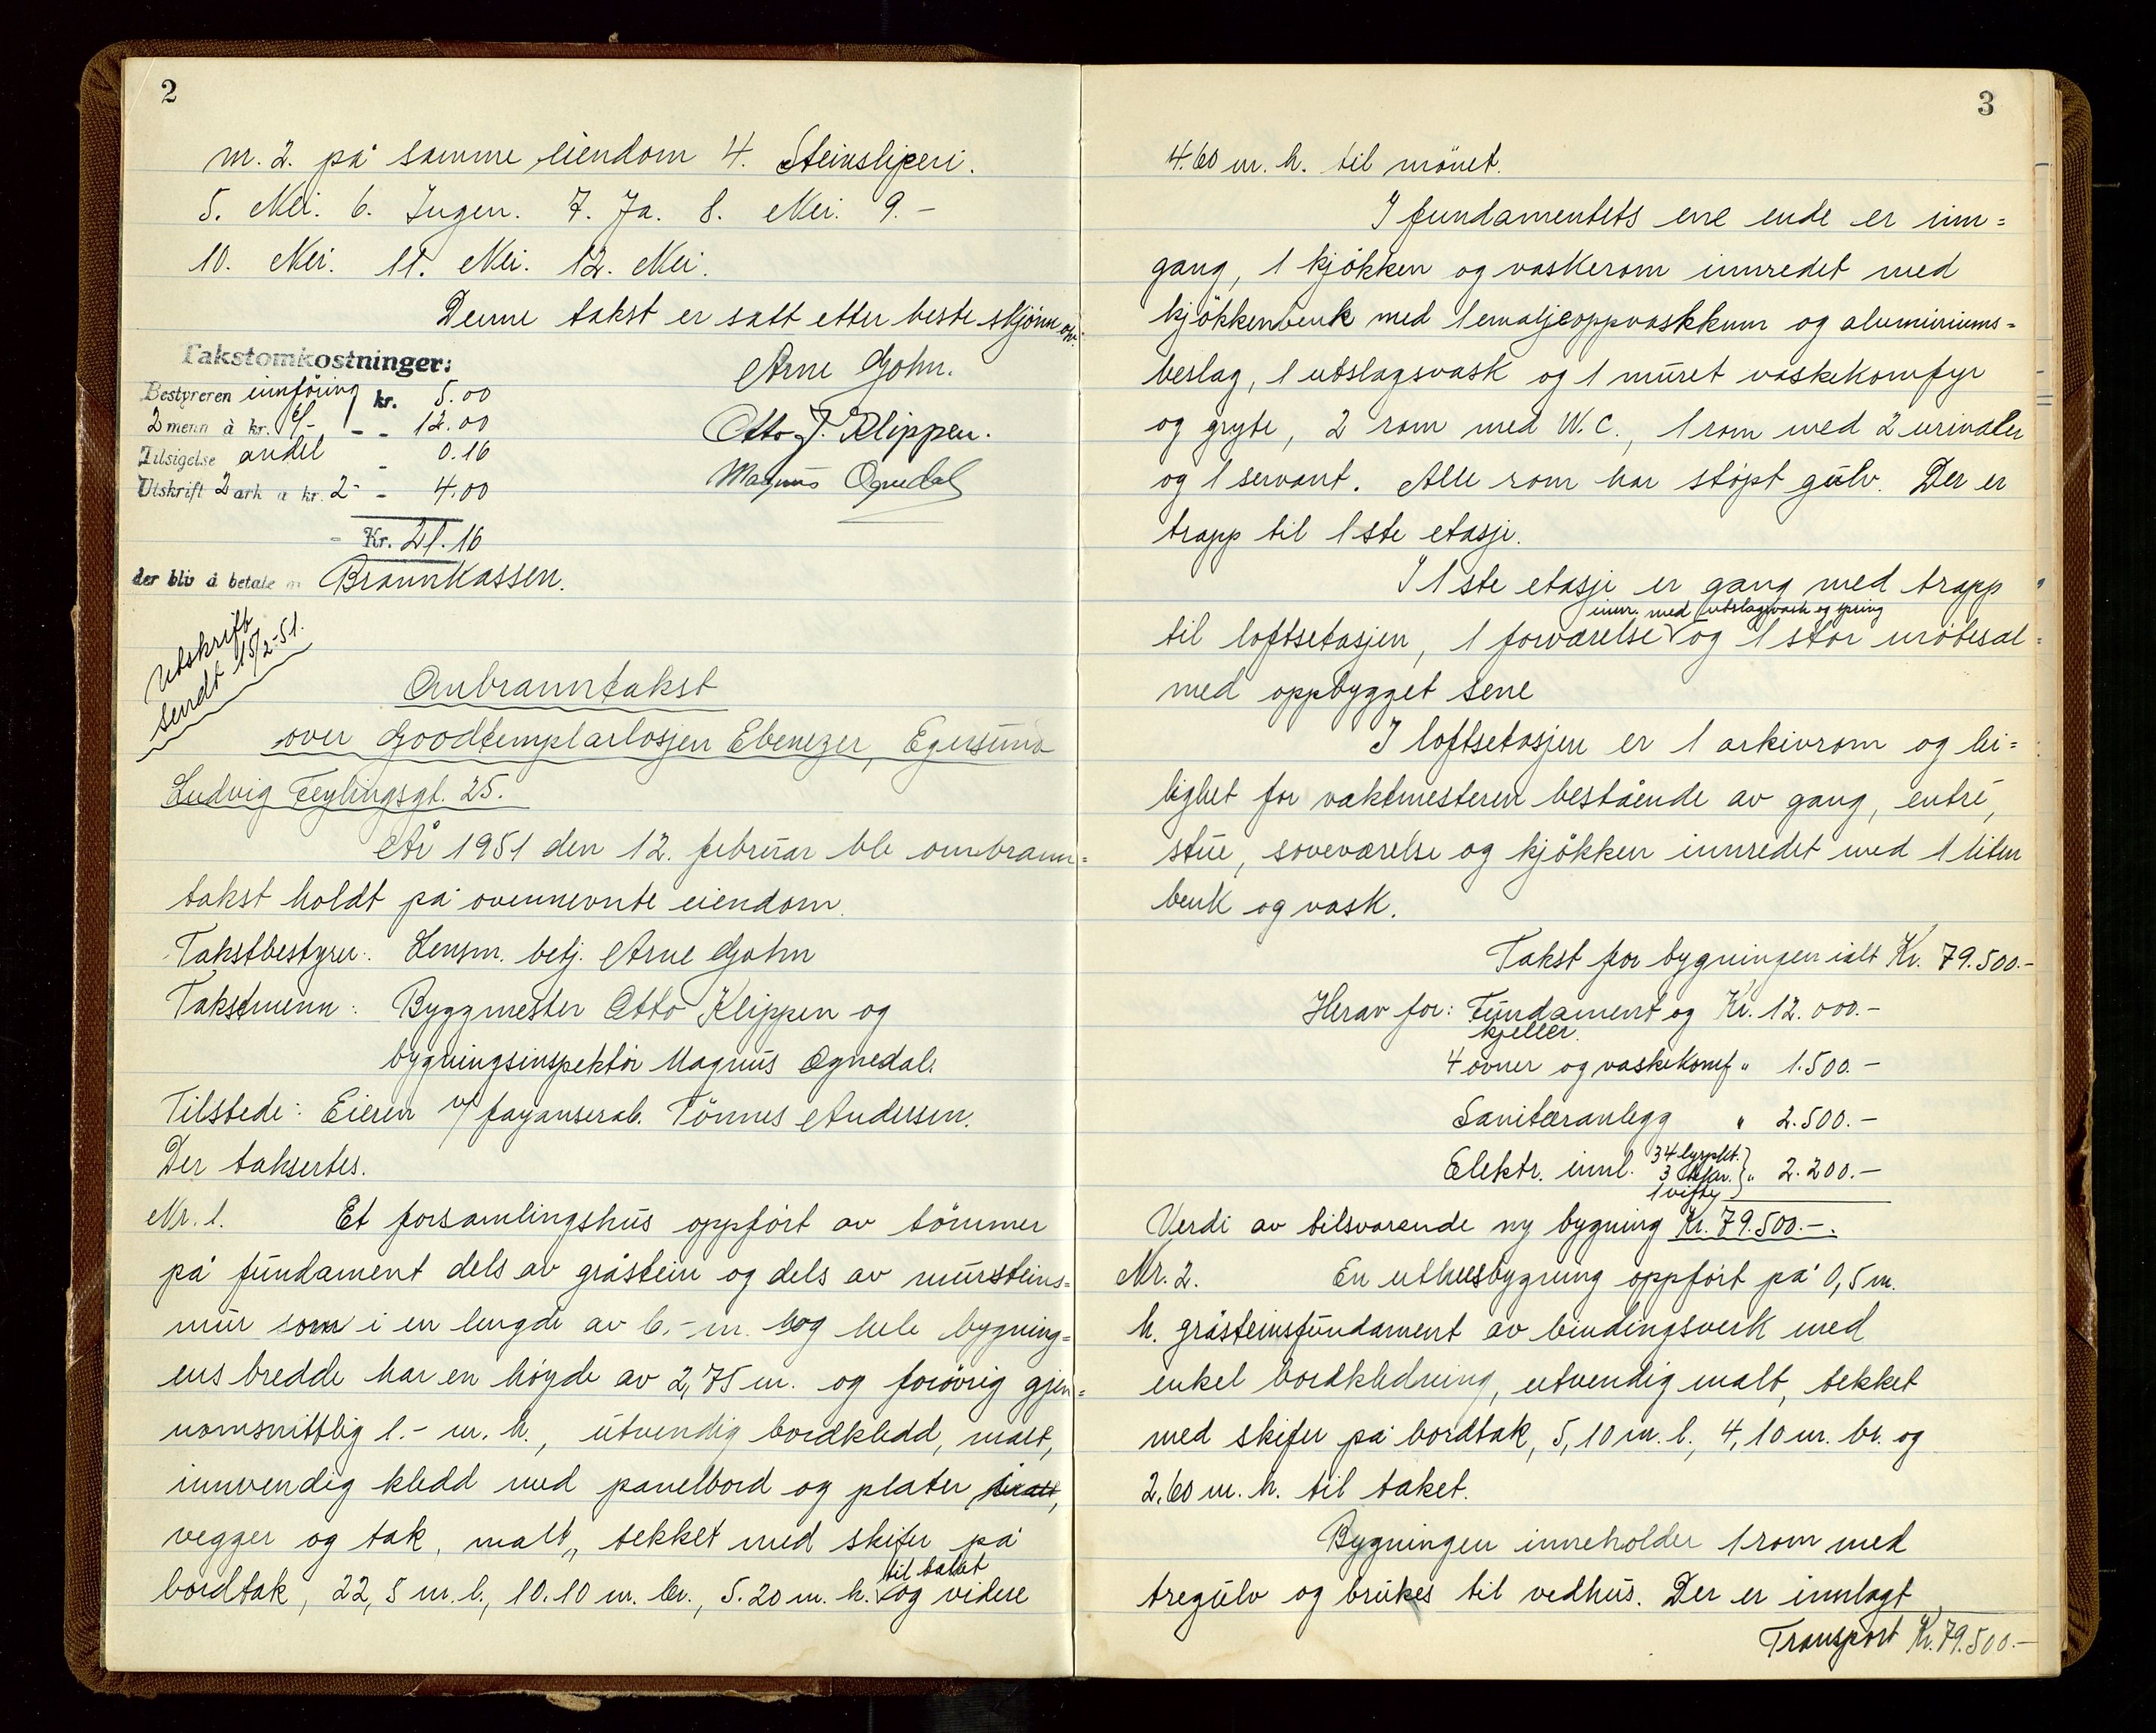 2
nr. 2. på samme eiendom 4. Steinsliperi.
5. Nei. 6. Ingen. 7. Ja. 8. Nei. 9. –
10. Nei. 11. Nei. 12. Nei.
Denne takst er satt etter beste skjönn
Takstomkostninger:
Bestyreren innföring kr. 5.00
2 menn à kr. 6/- - - 12.00
Tilsigelse andel - 0.16
Utskrift 2 ark a kr. 2- - 4.00
- Kr. 21.16
der bliv å betale av Brannkassen.
Arne Gjohn.
Otto J. Klippen.
Magnus Ognedal
Utskrift
sendt 15/2-51.
Ombranntakst
over Goodtemplarlosjen Ebenezer, Egersund
Ludvig Feylingsgt. 25.
År 1951 den 12. februar ble ombrann=
takst holdt på ovennevnte eiendom.
Takstbestyrer: Lensm. betj. Arne Gjohn
Takstmenn: Byggmester Otto Klippen og
bygningsinspektör Magnus Ognedal.
Tilstede: Eieren v/ fayansearb. Tönnes Andersen.
Der taksertes.
Nr. 1. Et forsamlingshus oppfört av tömmer
på fundament dels av gråstein og dels av mursteins=
mur som i en lengde av 6.- m. og hele bygning=
ens bredde har en höyde av 2,75 m. og forövrig gjen=
nomsnittlig 1.- m. h., utvendig bordkledd, malt,
innvendig kledd med panelbord og plater malt,
vegger og tak, malt, tekket med skifer på
bordtak, 22,5 m. l., 10.10 m. br., 5.20 m. h. til taket og videre
3
4.60 m. h. til mönet.
I fundamentets ene ende er inn=
gang, 1 kjökken og vaskerom innredet med
kjökkenbenk med 1 emaljeoppvaskkum og aluminiums=
beslag, 1 utslagsvask og 1 muret vaskekomfyr
og gryte, 2 rom med W.C., 1 rom med 2 urinaler
og 1 servant. Alle rom har stöpt gulv. Der er
trapp til 1ste etasje.
I 1ste etasje er gang med trapp
til loftsetasjen, 1 forværelse innr. med utslagsvask og spring og 1 stor mötesal
med oppbygget sene
I loftsetasjen er 1 arkivrom og lei=
lighet for vaktmesteren bestående av gang, entré,
stue, soveværelse og kjökken innredet med 1 liten
benk og vask.
Takst for bygningen ialt Kr. 79.500.-
Herav for: Fundament og Kr. 12.000.-
kjeller.
4 ovner og vaskekomf " 1.500.-
Sanitæranlegg " 2.500.-
Elektr. innl. 34 lyspkt. 3 1 vifte " 2.200.-
Verdi av tilsvarende ny bygning Kr. 79.500.-.
Nr. 2. En uthusbygning oppfört på 0,5 m.
h. gråsteinsfundament av bindingsverk med
enkel bordkledning, utvendig malt, tekket
med skifer på bordtak, 5,10 m. l., 4,10 m. br. og
2.60 m. h. til taket.
Bygningen inneholder 1 rom med
tregulv og brukes til vedhus. Der er innlagt
Transport Kr. 79.500.-